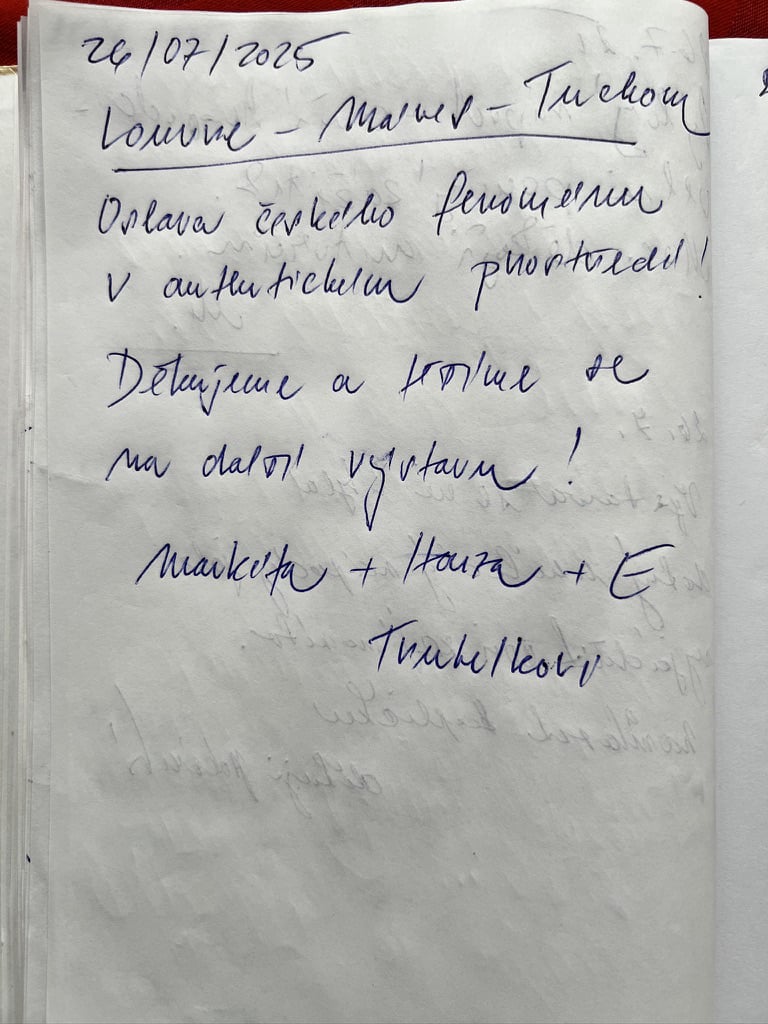 26/07/2025
Louvre - Mánes - Tuchom
Oslava českého fenoménu
v autentickém prostředí!
Děkujeme a těšíme se
na další výstavu!
Markéta + Honza + E
Trubelkovi